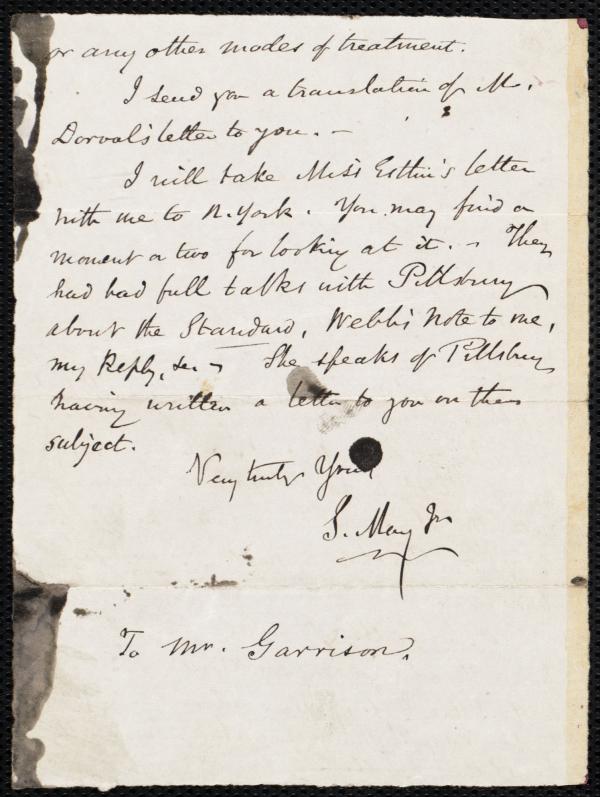 or any other modes of treatment.
I send you a translation of M.
Dorval's letter to you. -
I will take Miss Estlin's letter
with me to N. York. You may find a
moment or two for looking at it. - They
had had full talks with Pillsbury
about the Standard, Webb's Note to me,
my Reply, &c. - She speaks of Pillsbury
having written a letter to you on this
subject.
Very truly Yours
S. May Jr
To Mr. Garrison.